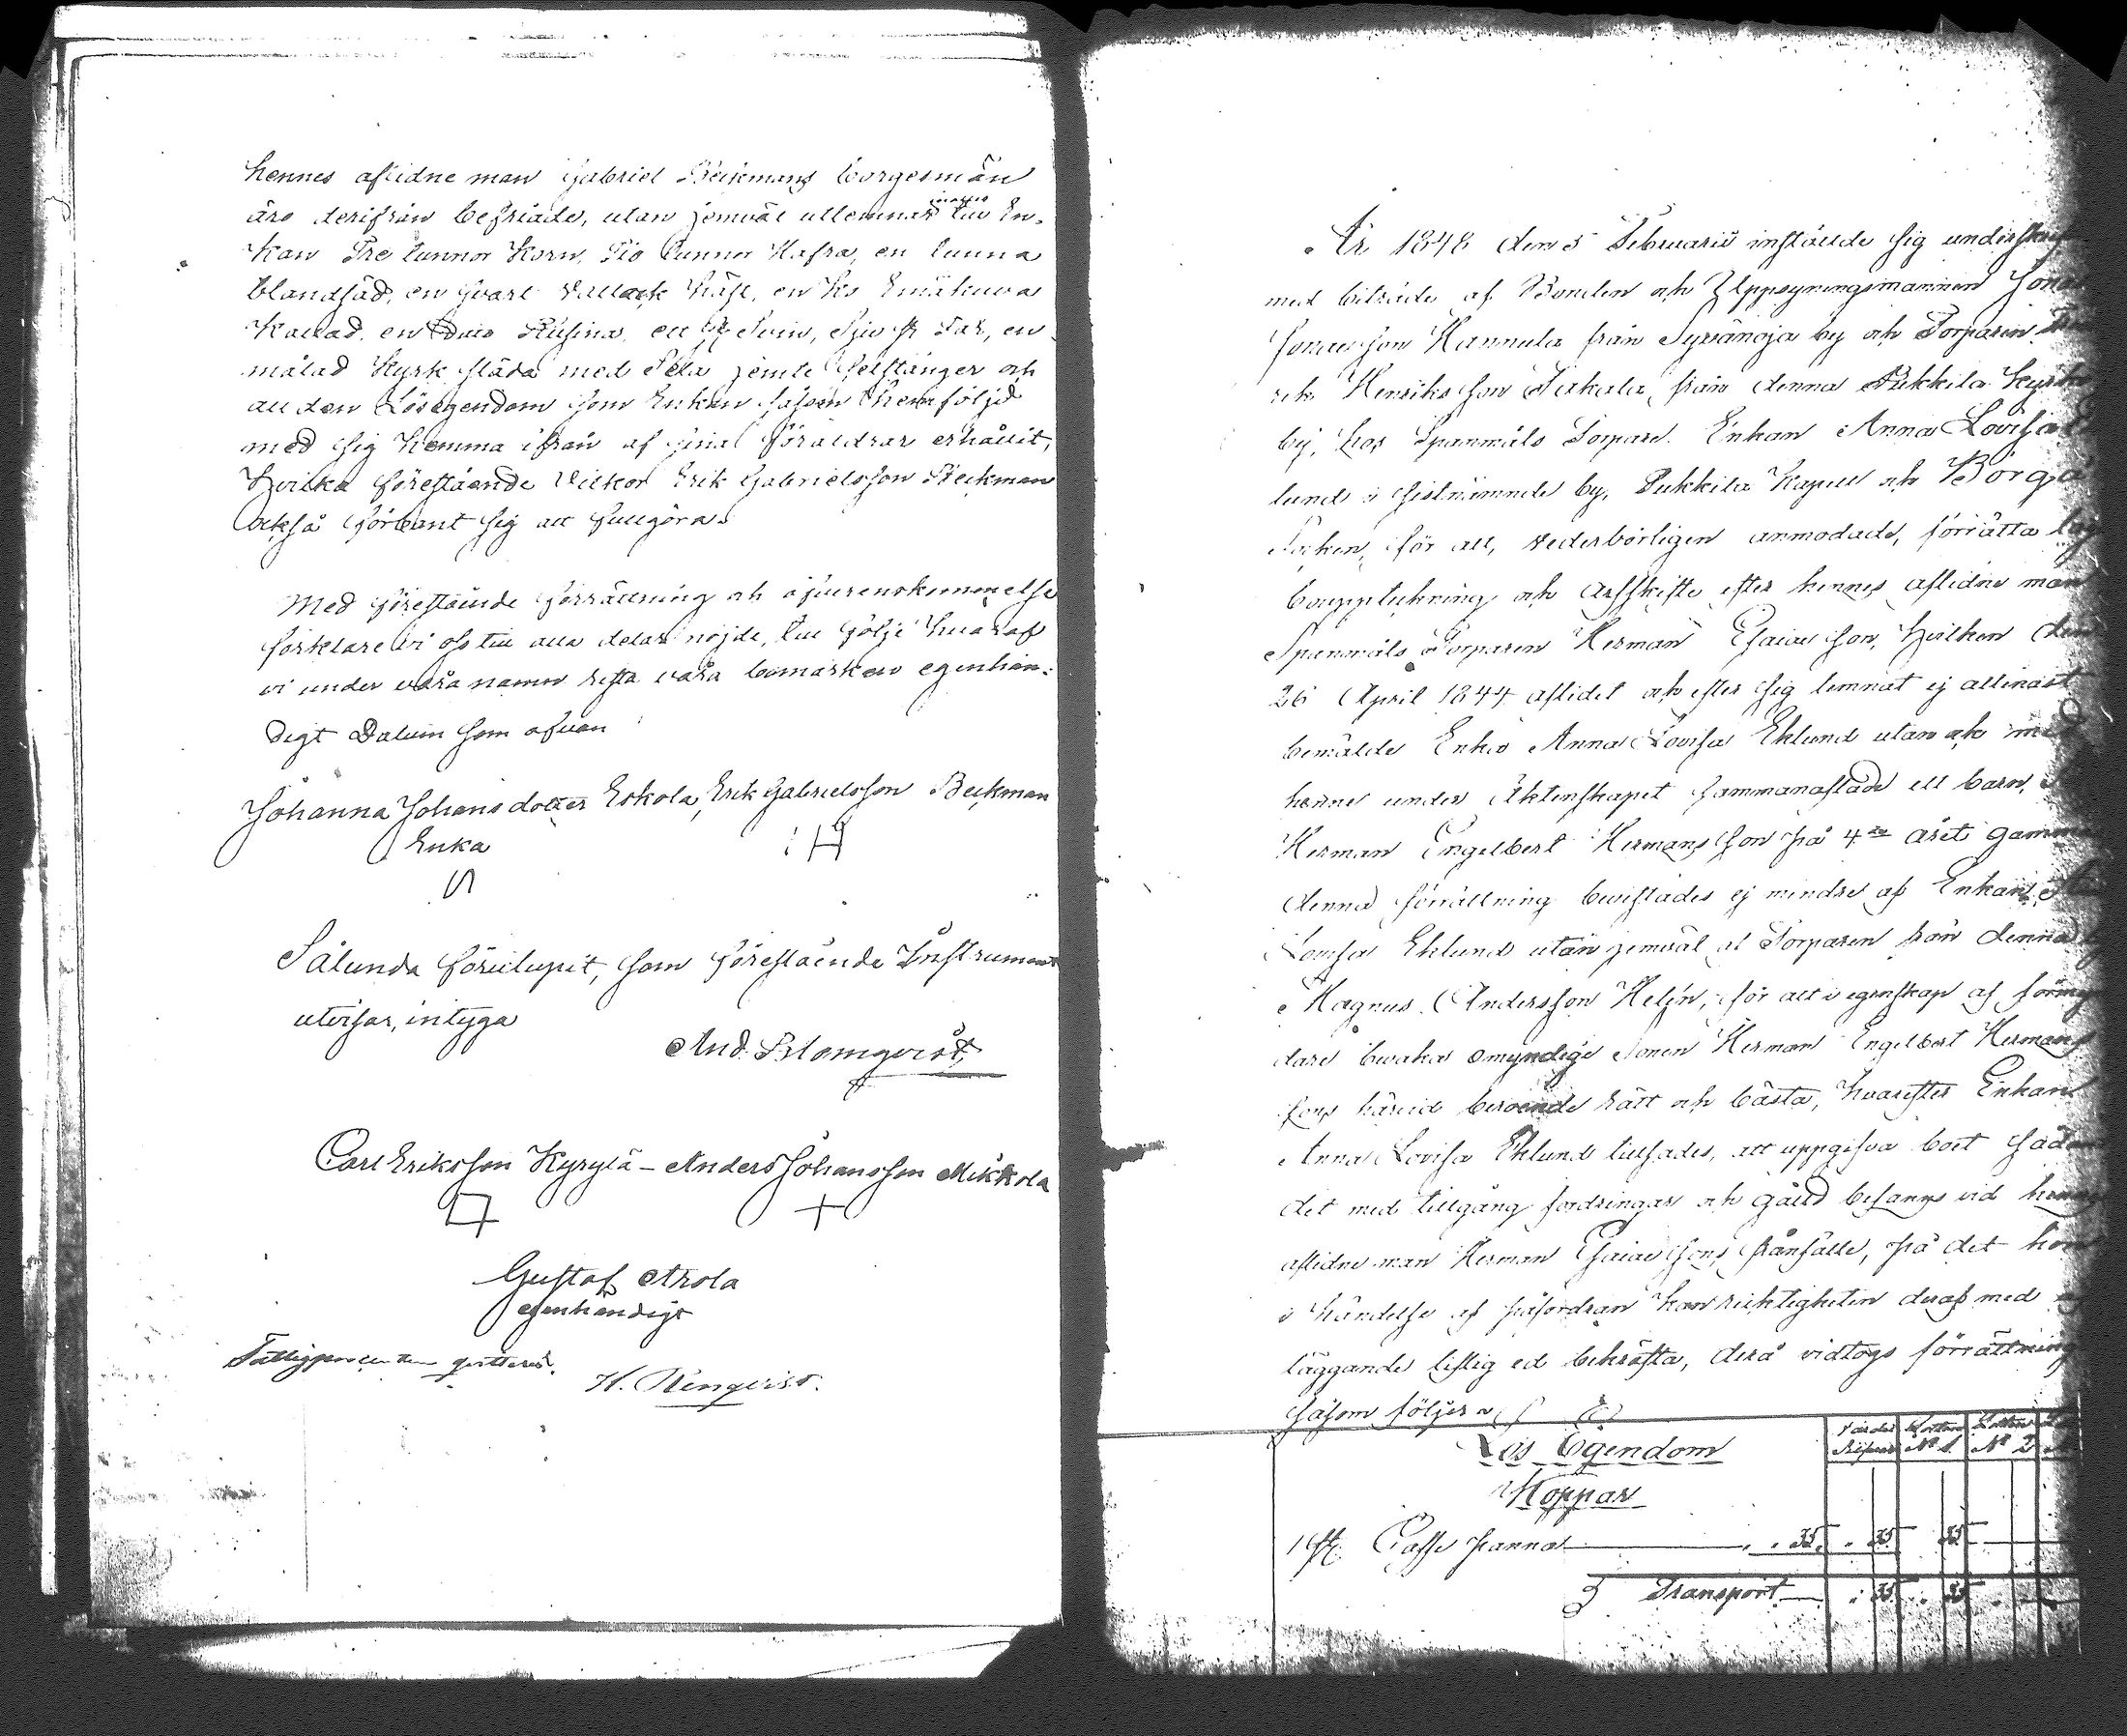 hennes aflidne man Gabriel Beckmans borgesmän
äro derifrån befriade, utan jemväl utlemnar till En-
kan Tre tunnor Korn, Tio tunnor Hafra, en tunna
blandsäd, en svart Vallack häst, en Ko Emäkuva
Kallad, en Rusina, ett Svin, sju st Får, en
målad Kyrk släda med Sela jemte och
all den Lösegendom som Enkan såsom hemföljd
med sig hemma ifrån af sina föräldrar erhållit,
Hvilka förestående Vilkor Erik Gabrielsson Beckman
också förbant sig att fullgöra.
Med förestående förrättning och öfverenskommelse
förklare vi oss till alla delar nöjde, till följe hvaraf
vi under våra namn rista våra bomärken egenhän-
digt Datum som ofvan
Johanna Johansdotter Eskola, Erik Gabrielsson Beckman
Enka
Sålunda förelupit, som förestående Instrument
utvisar, intyga
And. Blomqvist
Carl Eriksson Kyrylä - Anders Johansson Mikkola
Gustaf Arola
egenhändigt
Fattigprocenten qvitteras.
H. Renqvist.
År 1848 den 5 Februarii instälde sig
med biträde af Bonden och Uppsyningsmannen Jonas
son Hannula från Syvänoja by och Torparen
Henriksson från denna Pukkila Kyrko
by, hos Spanmåls Torpare Enkan Anna Lovisa
lund i sistnämnde by, Pukkila Kapell och Borgå
Socken, för att, vederbörligen anmodade, förrätta
bouppteckning och arfskifte efter hennes aflidne man
Spanmåls Torparen Herman Esaiasson, hvilken den
26 April 1844 aflidet och efter sig lemnat ej allenast
bemälde Enka Anna Lovisa Eklund utan ock med
henne under Äktenskapet sammanaflade ett barn,
Herman Engelbert Hermansson på 4de året
denna förrättning bevistades ej mindre af Enkan
Lovisa Eklund utan jemväl af Torparen från denna
Magnus Andersson Helén, för att i egenskap af
dare bevaka omyndige Sonen Herman Engelbert Hermans
sons härvid beroende rätt och bästa, hvarefter Enkan
Anna Lovisa Eklund tillsades, att uppgifva boet
det med tillgång fordringar och gäld befanns vid
aflidne man Herman Esaiassons frånfälle, på det hon
i händelse af påfordran kan ricktigheten deraf med
läggande liflig ed bekräfta, derå vidtogs förrättning
såsom följer
Lös Egendom
Koppar
N° 1. N° 2
1 st. Caffe panna 35. 35 35
Transport 35 35